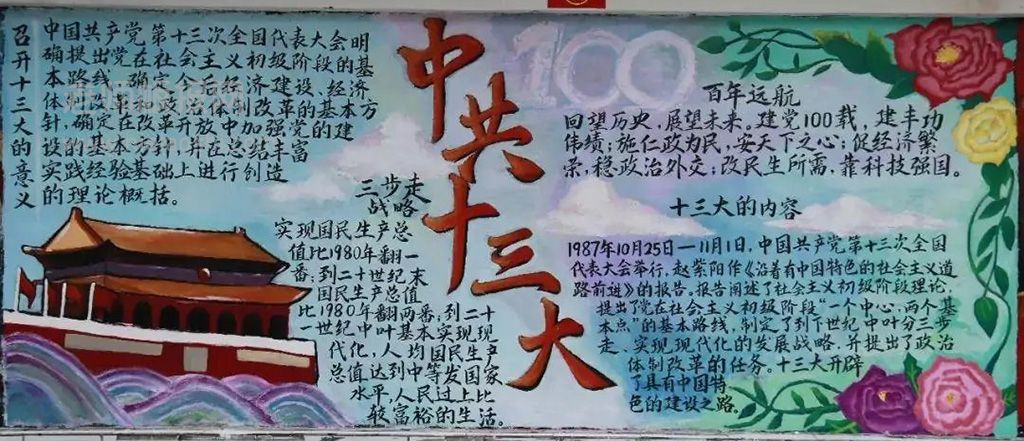 召开十三大的意义
中国共产党第十三次全国代表大会明
确提出党在社会主义初级阶段的基
本路线,确定今后经济建设、经济
体制改革和政治体制改革的基本方
针,确定在改革开放中加强党的建
设的基本方针,并在总结丰富
实践经验基础上进行创造
的理论概括。
中共十三大
100
百年远航
回望历史,展望未来。建党100载,建丰功
伟绩;施仁政为民,安天下之心;促经济繁
荣,稳政治外交;改民生所需,靠科技强国。
三步走
战略
实现国民生产总
值比1980年翻一
番;到二十世纪末
国民生产总值
比1980年翻两番,到二十
一世纪中叶基本实现现
代化,人均国民生产
总值达到中等发国家
水平,人民过上比
较富裕的生活。
十三大的内容
1987年10月25日—11月1日,中国共产党第十三次全国
代表大会举行,赵紫阳作《沿着有中国特色的社会主义道
路前进》的报告。报告阐述了社会主义初级阶段理论,
提出了党在社会主义初级阶段“一个中心,两个基
本点”的基本路线,制定了到下世纪中叶分三步
走、实现现代化的发展战略,并提出了政治
体制改革的任务。十三大开辟
了具有中国特
色的建设之路。